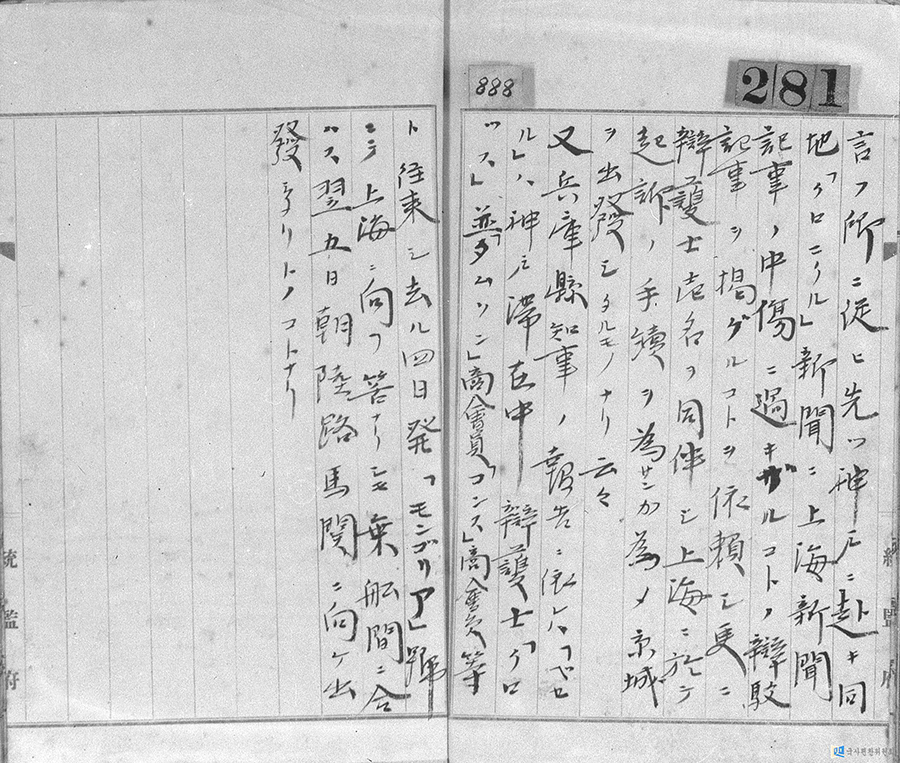 888
281
言フ所ニ従ヒ先ツ神戸ニ赴キ同
地「クロニクル」新聞ニ上海新聞
記事ノ中傷ニ過キザルコトノ辯駁
記事ヲ掲グルコトヲ依頼シ更ニ
辯護士壱名ヲ同伴シ上海ニ於テ
起訴ノ手續ヲ為サンカ為メ京城
ヲ出發シタルモノナリ云々
又兵庫縣知事ノ報告ニ依レハ「ベセ
ル」ハ神戸滞在中辯護士「クロ
ッス」並「タムソン」商會員「コンス」商會員等
ト往来シ去ル四日発「モンゴリア」號
ニテ上海ニ向フ筈ナリシモ乗舩間ニ合
ハス翌五日朝陸路馬関ニ向ケ出
發シタリトノコトナリ
統監府
統監府
국사편찬위원회